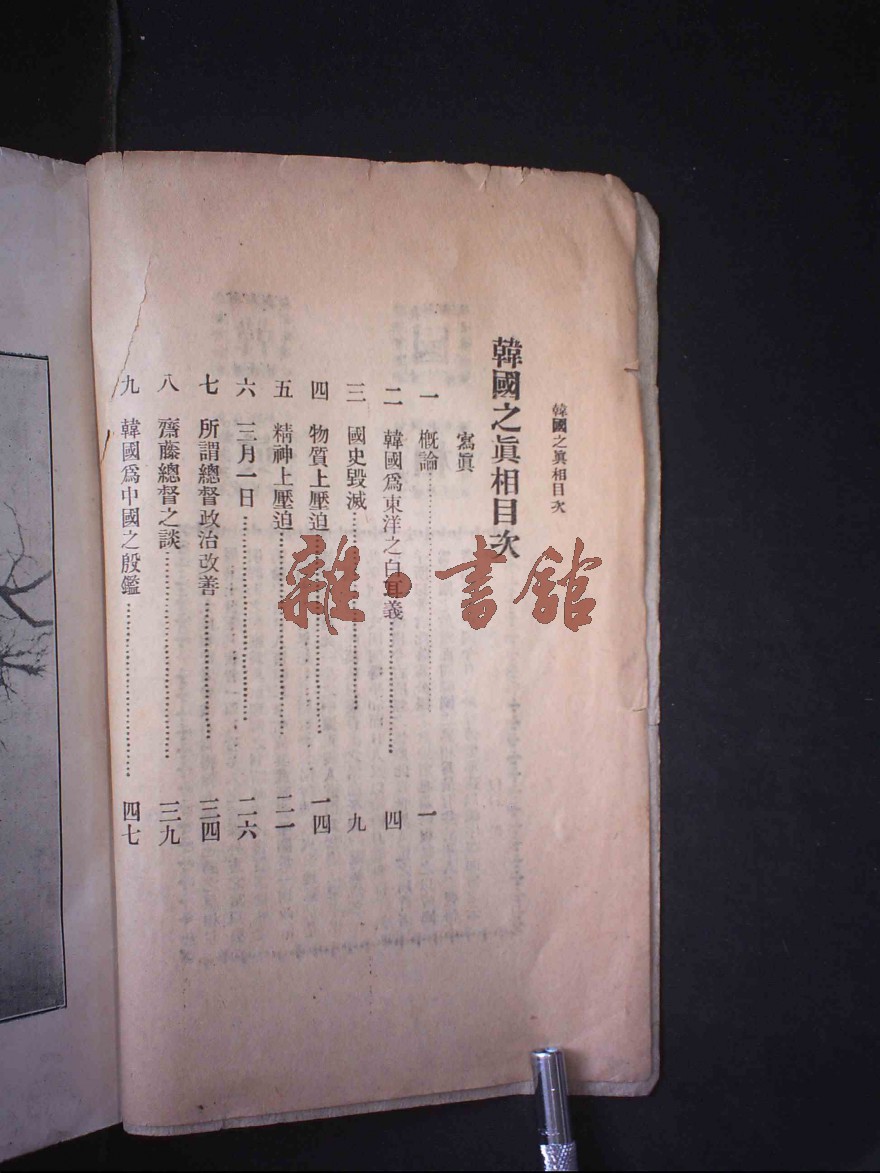 韓國之眞相目次
韓國之眞相目次
寫眞
一 槪論……一
二 韓國爲東洋之白耳義……四
三 國史毀滅……九
四 物質上壓迫……一四
五 精神上壓迫……二一
六 三月一日……二六
七 所謂總督政治改善……三四
八 齋藤總督之談……三九
九 韓國爲中國之殷鑑……四七
雜·書館